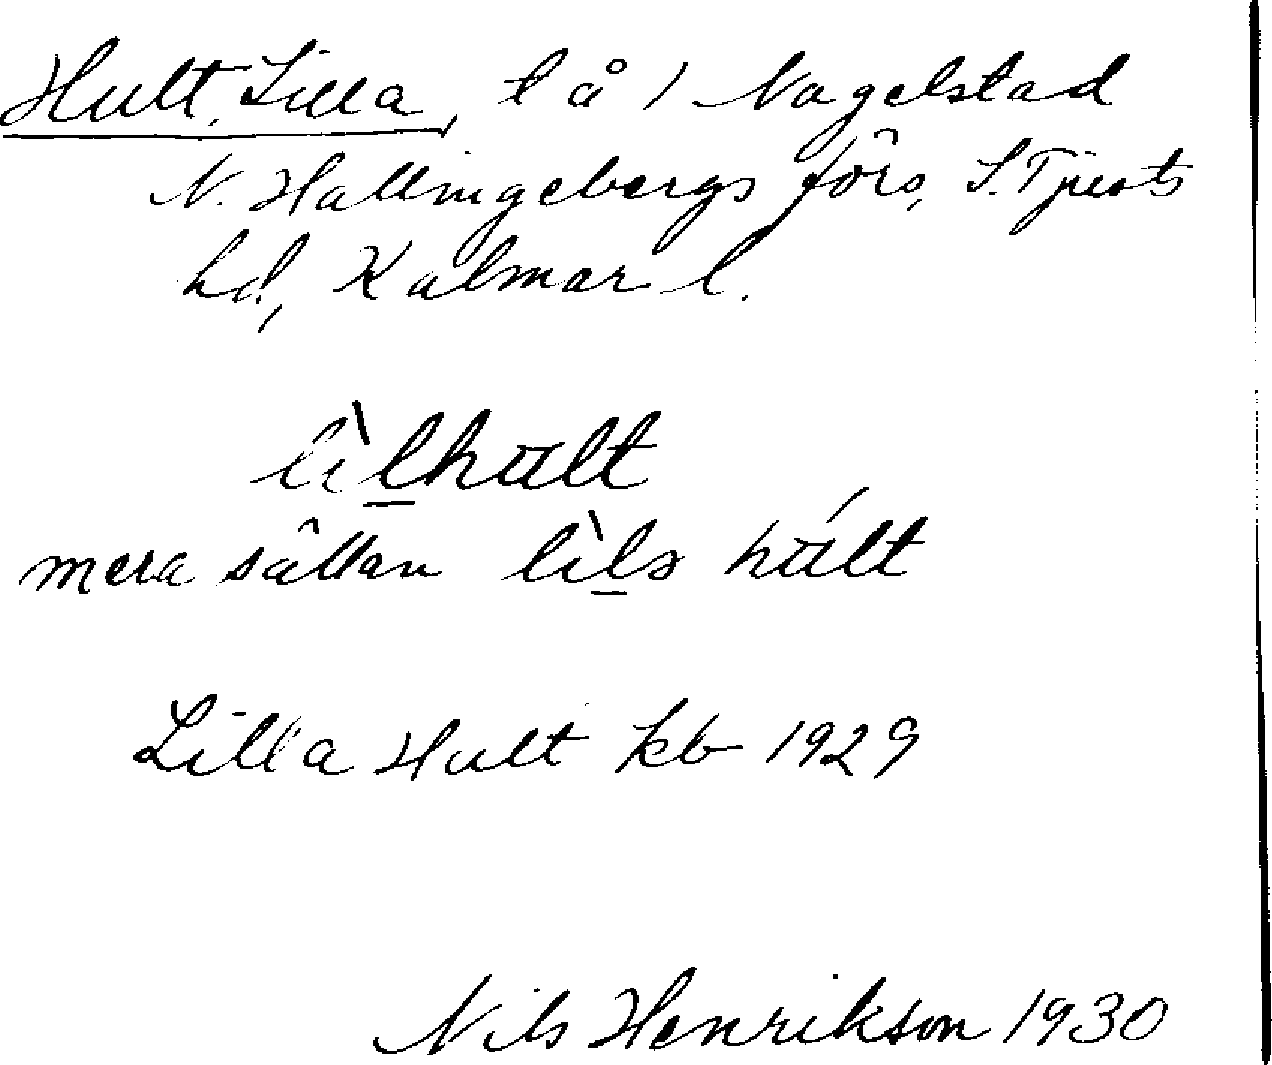 Hult, Lilla, l å / Nagelstad
N. Hallingebergs förs, S. Tjusts
hd, Kalmar l.
lìlhult
mera sällan lìlə húlt
Lilla Hult kb 1929
Nils Henrikson 1930